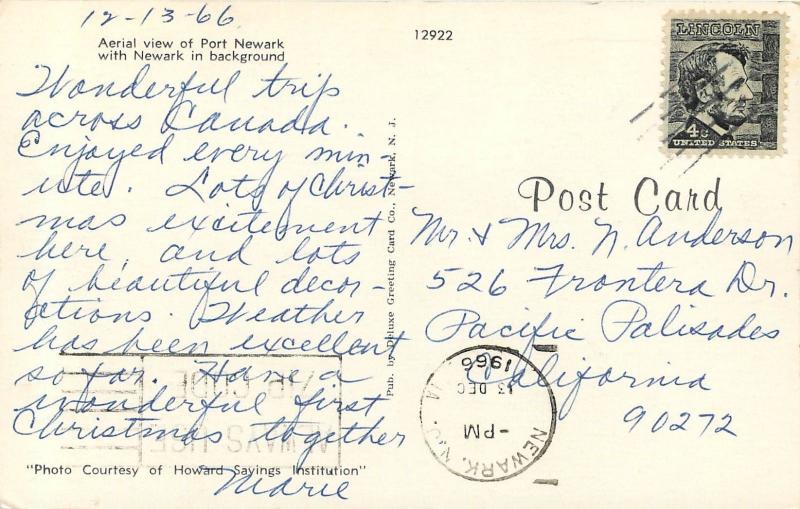 12-13-66
Aerial view of Port Newark
with Newark in background
12922
Wonderful trip
across Canada.
Enjoyed every min-
ute. Lots of Christ-
mas excitement
here, and lots
of beautiful decor-
ations. Weather
has been excellent
so far. Have a
wonderful first
Christmas together
Marie
"Photo Courtesy of Howard Sayings Institution"
Pub. by Deluxe Greeting Card Co., Newark, N. J.
LINCOLN
4c
UNITED STATES
Post Card
Mr. & Mrs. N. Anderson
526 Frontera Dr.
Pacific Palisades
California
90272
NEWARK, N.J.
PM
13 DEC
1966
ALWAYS USE
ZIP CODE